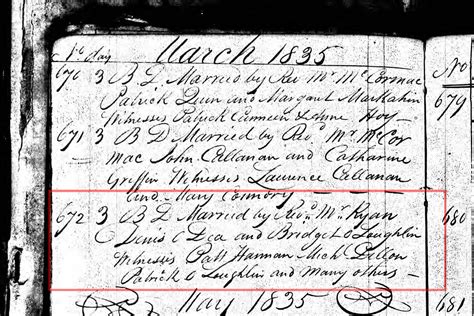 1st day March 1835
670 3 B D Married by Revd Mr McCormac
Patrick Quin and Margaret Markahin
Witnesses Patrick & Hoy —
671 3 B D Married by Revd Mr McCor
mac John Callanan and Catharine
Griffin Witnesses Laurence Callanan
and Mary Connory —
672 3 B D Married by Revd Mr Ryan
Denis O Dea and Bridget O Loughlin
Witnesses Patt Hannan Michl Dillon
Patrick O Loughlin and many others —
May 1835
No
679
680
681